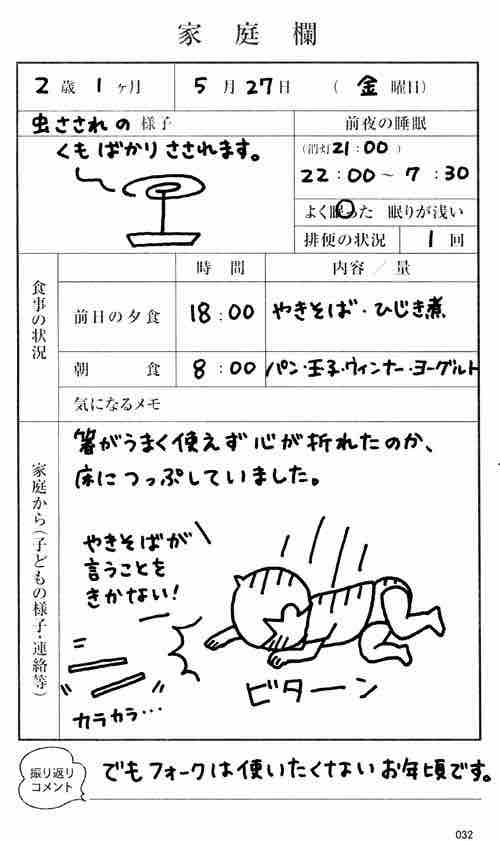 家庭欄
2歳1ヶ月 5月27日 (金曜日)
虫さされの様子
くもばかりさされます。
前夜の睡眠
(消灯21:00)
22:00～7:30
よく眠った 眠りが浅い
排便の状況 1回
食事の状況
時間 内容／量
前日の夕食 18:00 やきそば・ひじき煮
朝食 8:00 パン・玉子・ウィンナー・ヨーグルト
気になるメモ
家庭から(子どもの様子・連絡等)
箸がうまく使えず心が折れたのか、
床につっぷしていました。
やきそばが
言うことを
きかない!
ビターン
カラカラ…
振り返り
コメント
でもフォークは使いたくないお年頃です。
032